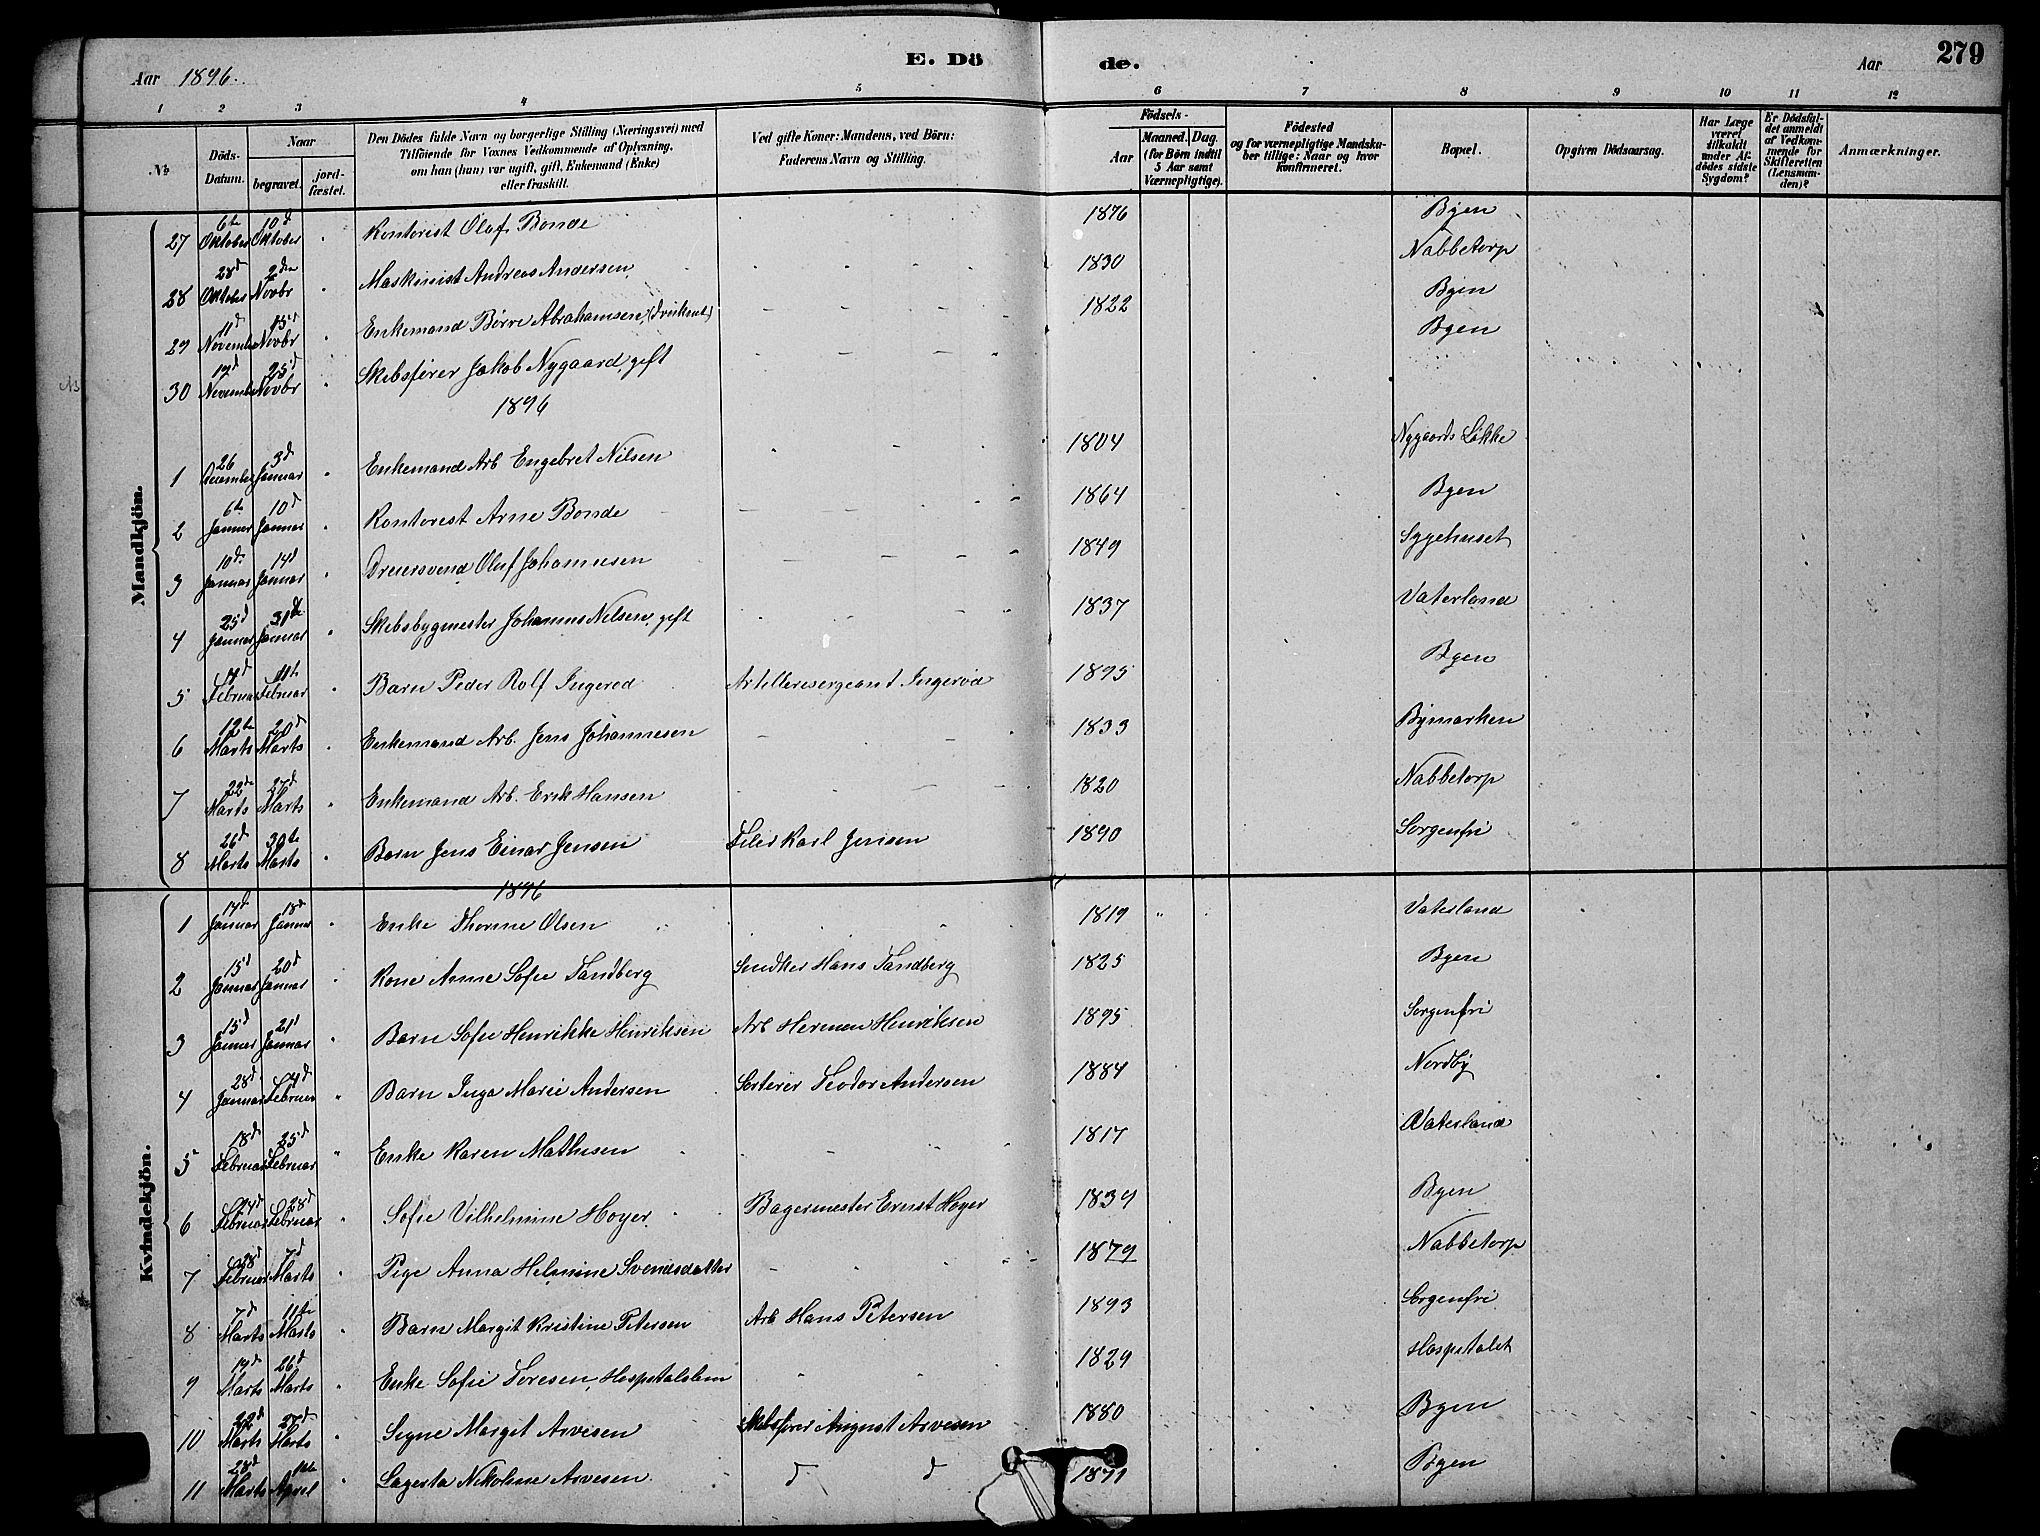 E. Dö de.
279
Aar 1896.
Aar
1 2 3 4 5 6 7 8 9 10 11 12
№
Döds-Datum.
Naar
begravet.
jord-fæstet.
Den Dödes fulde Navn og borgerlige Stilling (Næringsvei) med
Tilföiende for Voxnes Vedkommende af Oplysning,
om han (hun) var ugift, gift, Enkemand (Enke)
eller fraskilt.
Ved gifte Koner: Mandens, ved Börn:
Faderens Navn og Stilling.
Födsels-
Aar
Maaned. Dag.
(for Börn indtil
5 Aar samt
Værnepligtige).
Födested
og for værnepligtige Mandsku-
ber tillige: Naar og hvor
konfirmeret.
Bopæl.
Opgiven Dödsaarsag.
Har Læge
været
tilkaldt
under Af-
dödes sidste
Sygdom?
Er Dödsfal-
det anmeldt
af Vedkom-
mende for
Skifteretten
(Lensman-
den)?
Anmærkninger.
Mandkjön.
27 6te Oktober 10d Oktober " Kontorist Olaf Bonde 1876 Byen
28 28d Oktober 2den Novbr " Maskinist Andreas Andersen 1830 Nabbetorp
29 11d November 15d Novbr " Enkemand Börre Abrahamsen, 1822 Byen
30 November 25d Novbr " Skibsförer Jakob Nygaard, gift Byen
1896
1 26 December 3d Januar " Enkemand Arb Engebret Nilsen 1804 Nygaards Løkke
2 6te Januar 10d Januar " Kontorist Arne Bonde 1864 Byen
3 10d Januar 14d Januar " Dreiersvend Oluf Johannesen 1849 Sygehuset
4 25d Januar 31d Januar " Skibsbygmester Johannes Nilsen, gift 1837 Vaterland
5 Februar 11te Februar " Barn Peder Rolf Ingerød Artillerisergeant Ingerød 1895 Byen
6 12te Marts 20d Marts " Enkemand Arb. Jens Johannesen 1833 Bymarken
7 22d Marts 27d Marts " Enkemand Arb. Erik Hansen 1820 Nabbetorp
8 26d Marts 30te Marts " Barn Jens Einar Jensen Filer Karl Jensen 1890 Sorgenfri
1896
Kvindekjön.
1 Januar 18d Januar " Enke Thorine Olsen 1819 Vaterland
2 15d Januar 20d Januar " Kone Anne Sofie Sandberg Snedker Hans Sandberg 1825 Byen
3 15d Januar 21d Januar " Barn Sofie Henrikke Henriksen Arb Herman Henriksen 1895 Sorgenfri
4 28d Januar Februar " Barn Inga Marie Andersen Sorterer Teodor Andersen 1884 Nordby
5 18d Februar 25d Februar " Enke Karen Mathisen 1817 Vaterland
6 24d Februar 28d Februar " Sofie Vilhelmine Hoyer Bagermester Ernst Hoyer 1839 Byen
7 28d Februar 7d Marts " Pige Anna Helmine Svendsdatter 1879 Nabbetorp
8 7d Marts 11te Marts " Barn Margit Kristine Petersen Arb Hans Petersen 1893 Sorgenfri
9 Marts 26d Marts " Enke Sofie Toresen, Hospitalslem 1829 Hospitalet
10 22d Marts 27d Marts " Signe Margit Arvesen Skibsfører August Arvesen 1880 Byen
11 28d Marts 1ste April " Lagerta Nikoline Arvesen d d 1871 Byen